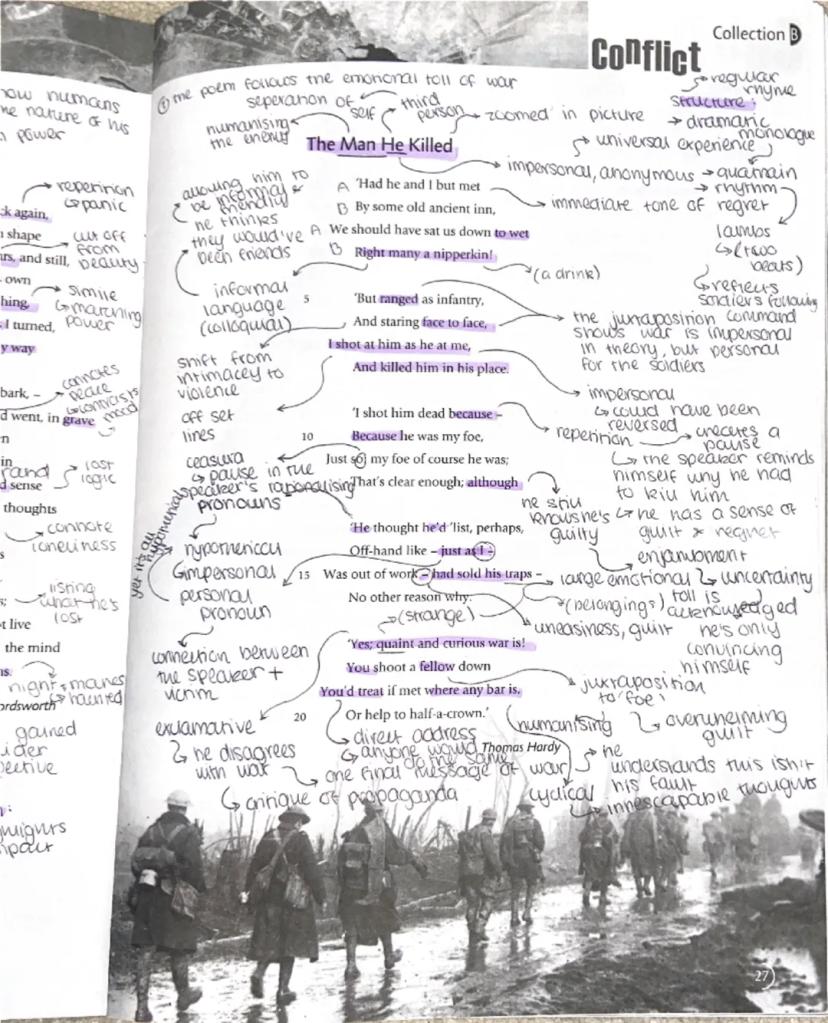 Collection B
Conflict
① the poem follows the emotional toll of war
seperation of self
third person
"zoomed" in picture
humanising the enemy
regular rhyme
structure:
→ dramatic monologue
universal experience
The Man He Killed
impersonal, anonymous
→ quatrain
→ rhythm
iambs
↳ (two beats)
↳ reflects soldiers following command
allowing him to be informal & friendly
he thinks they would've been friends
A 'Had he and I but met
immediate tone of regret
B By some old ancient inn,
A We should have sat us down to wet
B Right many a nipperkin!
(a drink)
informal language (colloquial)
5 'But ranged as infantry,
And staring face to face,
I shot at him as he at me,
And killed him in his place.
the juxtaposition shows war is impersonal in theory, but personal for the soldiers
shift from intimacey to violence
off set lines
impersonal
↳ could have been reversed
'I shot him dead because –
10 Because he was my foe,
Just so; my foe of course he was;
That's clear enough; although
repetition → creates a pause
↳ the speaker reminds himself why he had to kill him
↳ he has a sense of guilt & regret
ceasura
↳ pause in the speaker's rationalising
pronouns
he still knows he's guilty
enjambment
↳ uncertainty
'He thought he'd 'list, perhaps,
Off-hand like – just as I –
15 Was out of work – had sold his traps –
No other reason why.
yet it's all hypothetical
hypothetical
impersonal
personal pronoun
connection between the speaker + victim
large emotional toll is acknowledged
(belongings)
uneasiness, guilt
he's only convincing himself
(strange)
'Yes; quaint and curious war is!
You shoot a fellow down
You'd treat if met where any bar is,
20 Or help to half-a-crown.'
Thomas Hardy
juxtaposition to 'foe'
humanising
↳ overwhelming guilt
exclamative
↳ he disagrees with war
↳ direct address
↳ anyone would do the same
→ one final message of war
↳ critique of propaganda
cyclical
↳ innescapable thoughts
→ he understands this isn't his fault
27
how humans
nature of his
power
repetition
↳ panic
ck again,
shape
cut off from beauty
and still,
own
simile
↳ marching power
hing,
I turned,
y way
connotes peace
↳ contrasts mood
bark, –
d went, in grave
in
lost logic
d sense
thoughts
connote loneliness
listing what he's lost
t live
the mind
night → manes
↳ haunted
ordsworth
gained